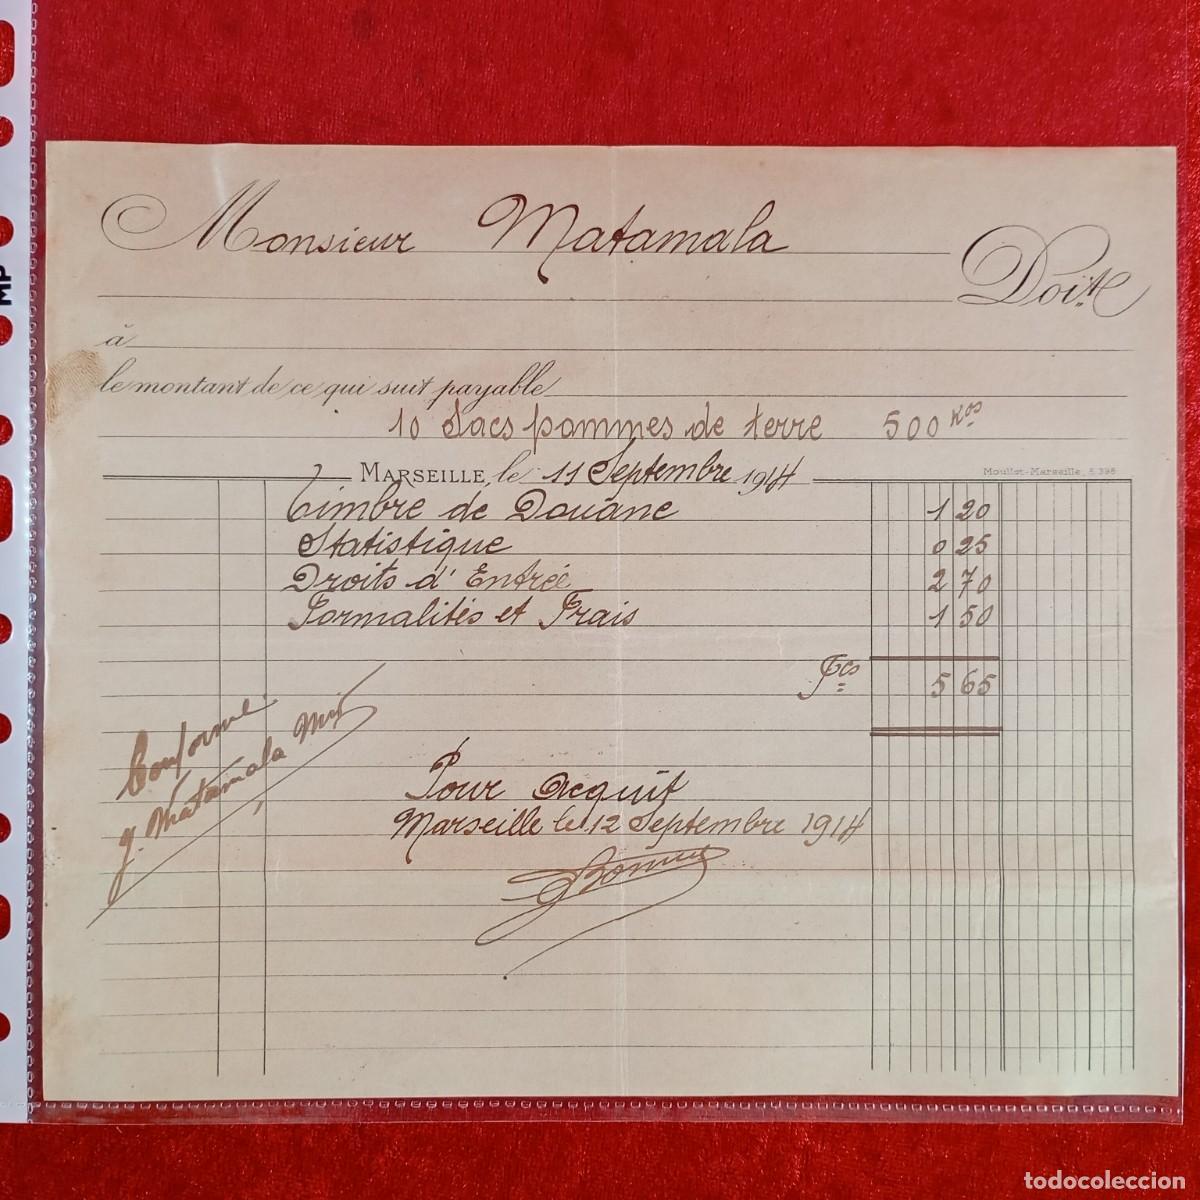 Monsieur Matamala
Doit
à
le montant de ce qui suit payable
10 Sacs pommes de terre 500 Kos
MARSEILLE, le 11 Septembre 1914
Moullot-Marseille, 5.398
Timbre de Douane 1 20
Statistique 0 25
Droits d'Entrée 2 70
Formalités et Frais 1 50
Fcs 5 65
Conforme
J. Matamala
Pour Acquit
Marseille le 12 Septembre 1914
MP
todocoleccion